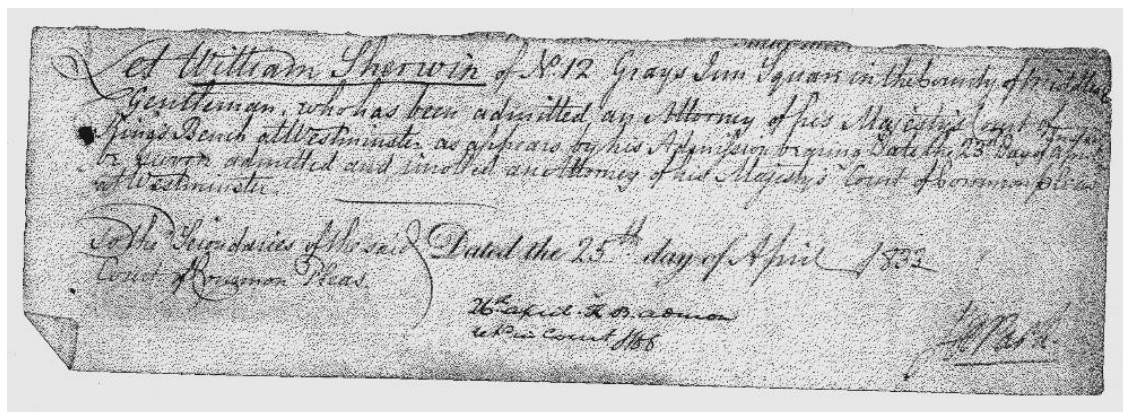 Let William Sherwin of No. 12 Grays Inn Square in the County of Middlesex
Gentleman, who has been admitted an Attorney of his Majesty's Court of
Kings Bench at Westminster as appears by his Admission bearing Date the 23rd Day of April
be sworn admitted and inrolled an Attorney of his Majesty's Court of Common Pleas
at Westminster.
To the Secondaries of the said
Court of Common Pleas.
Dated the 25th day of April 1833
in Court